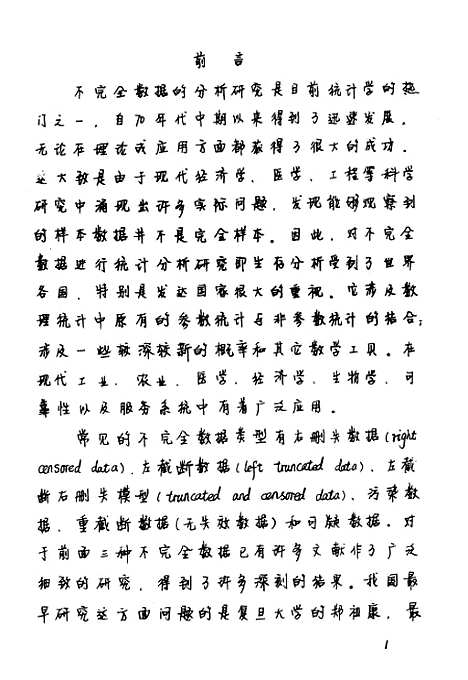 前 言
不完全数据的分析研究是目前统计学的热
门之一，自70年代中期以来得到了迅速发展。
无论在理论或应用方面都获得了很大的成功。
这大致是由于现代经济学、医学、工程等科学
研究中涌现出许多实际问题，发现能够观察到
的样本数据并不是完全样本。因此，对不完全
数据进行统计分析研究即生存分析受到了世界
各国，特别是发达国家很大的重视。它涉及数
理统计中原有的参数统计与非参数统计的结合；
涉及一些较深较新的概率和其它数学工具。在
现代工业、农业、医学、经济学、生物学、可
靠性以及服务系统中有着广泛应用。
常见的不完全数据类型有右删失数据(right
censored data)、左截断数据(left truncated data)、左截
断右删失模型(truncated and censored data)、污染数
据、重截断数据(无失效数据)和可疑数据。对
于前面三种不完全数据已有许多文献作了广泛
细致的研究，得到了许多深刻的结果。我国最
早研究这方面问题的是复旦大学的郑祖康，最
1